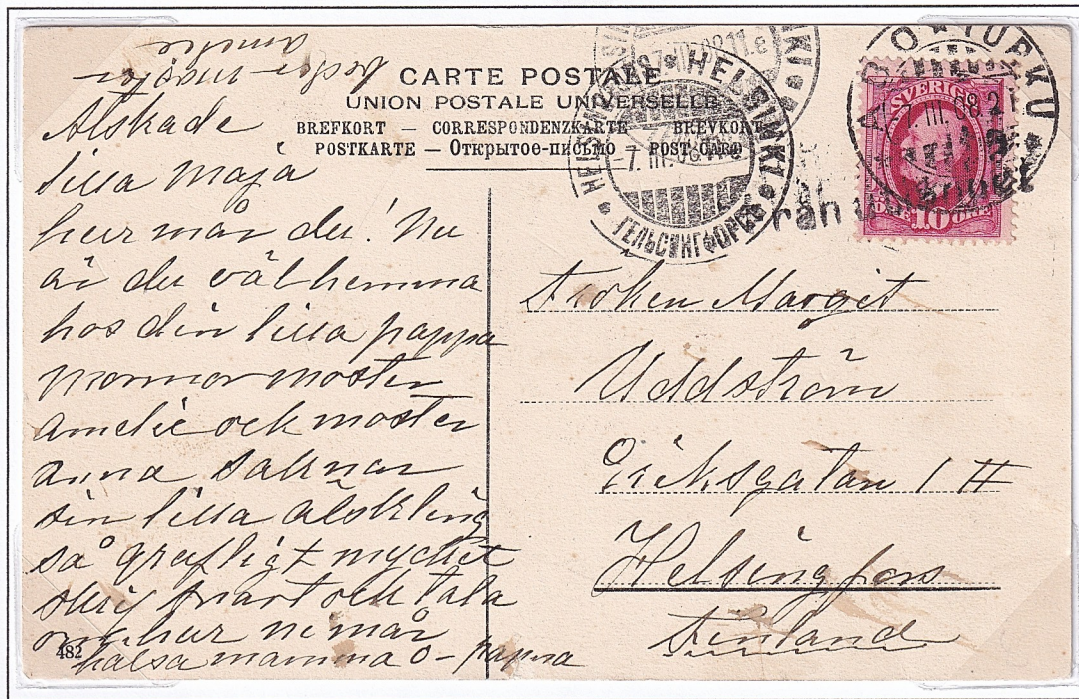 CARTE POSTALE
UNION POSTALE UNIVERSELLE
BREFKORT — CORRESPONDENZKARTE — BREVKORT
POSTKARTE — Открытое-письмо — POST-CARD
Älskade
lilla Maja
hur mår du! Nu
är du väl hemma
hos din lilla pappa
mormor moster
amelie och moster
anna saknar
sin lilla älskling
så grufligt mycket
skrif snart och tala
om hur ni mår
hälsa mamma o - pappa
moster
amelie
482
HELSINGFORS HELSINKI
7.III.08
ГЕЛЬСИНГФОРСЪ
ÅBO TURKU
III.08
SVERIGE
10
Från utlandet
Fröken Margit
Uddström
Eriksgatan 1 H
Helsingfors
Finland